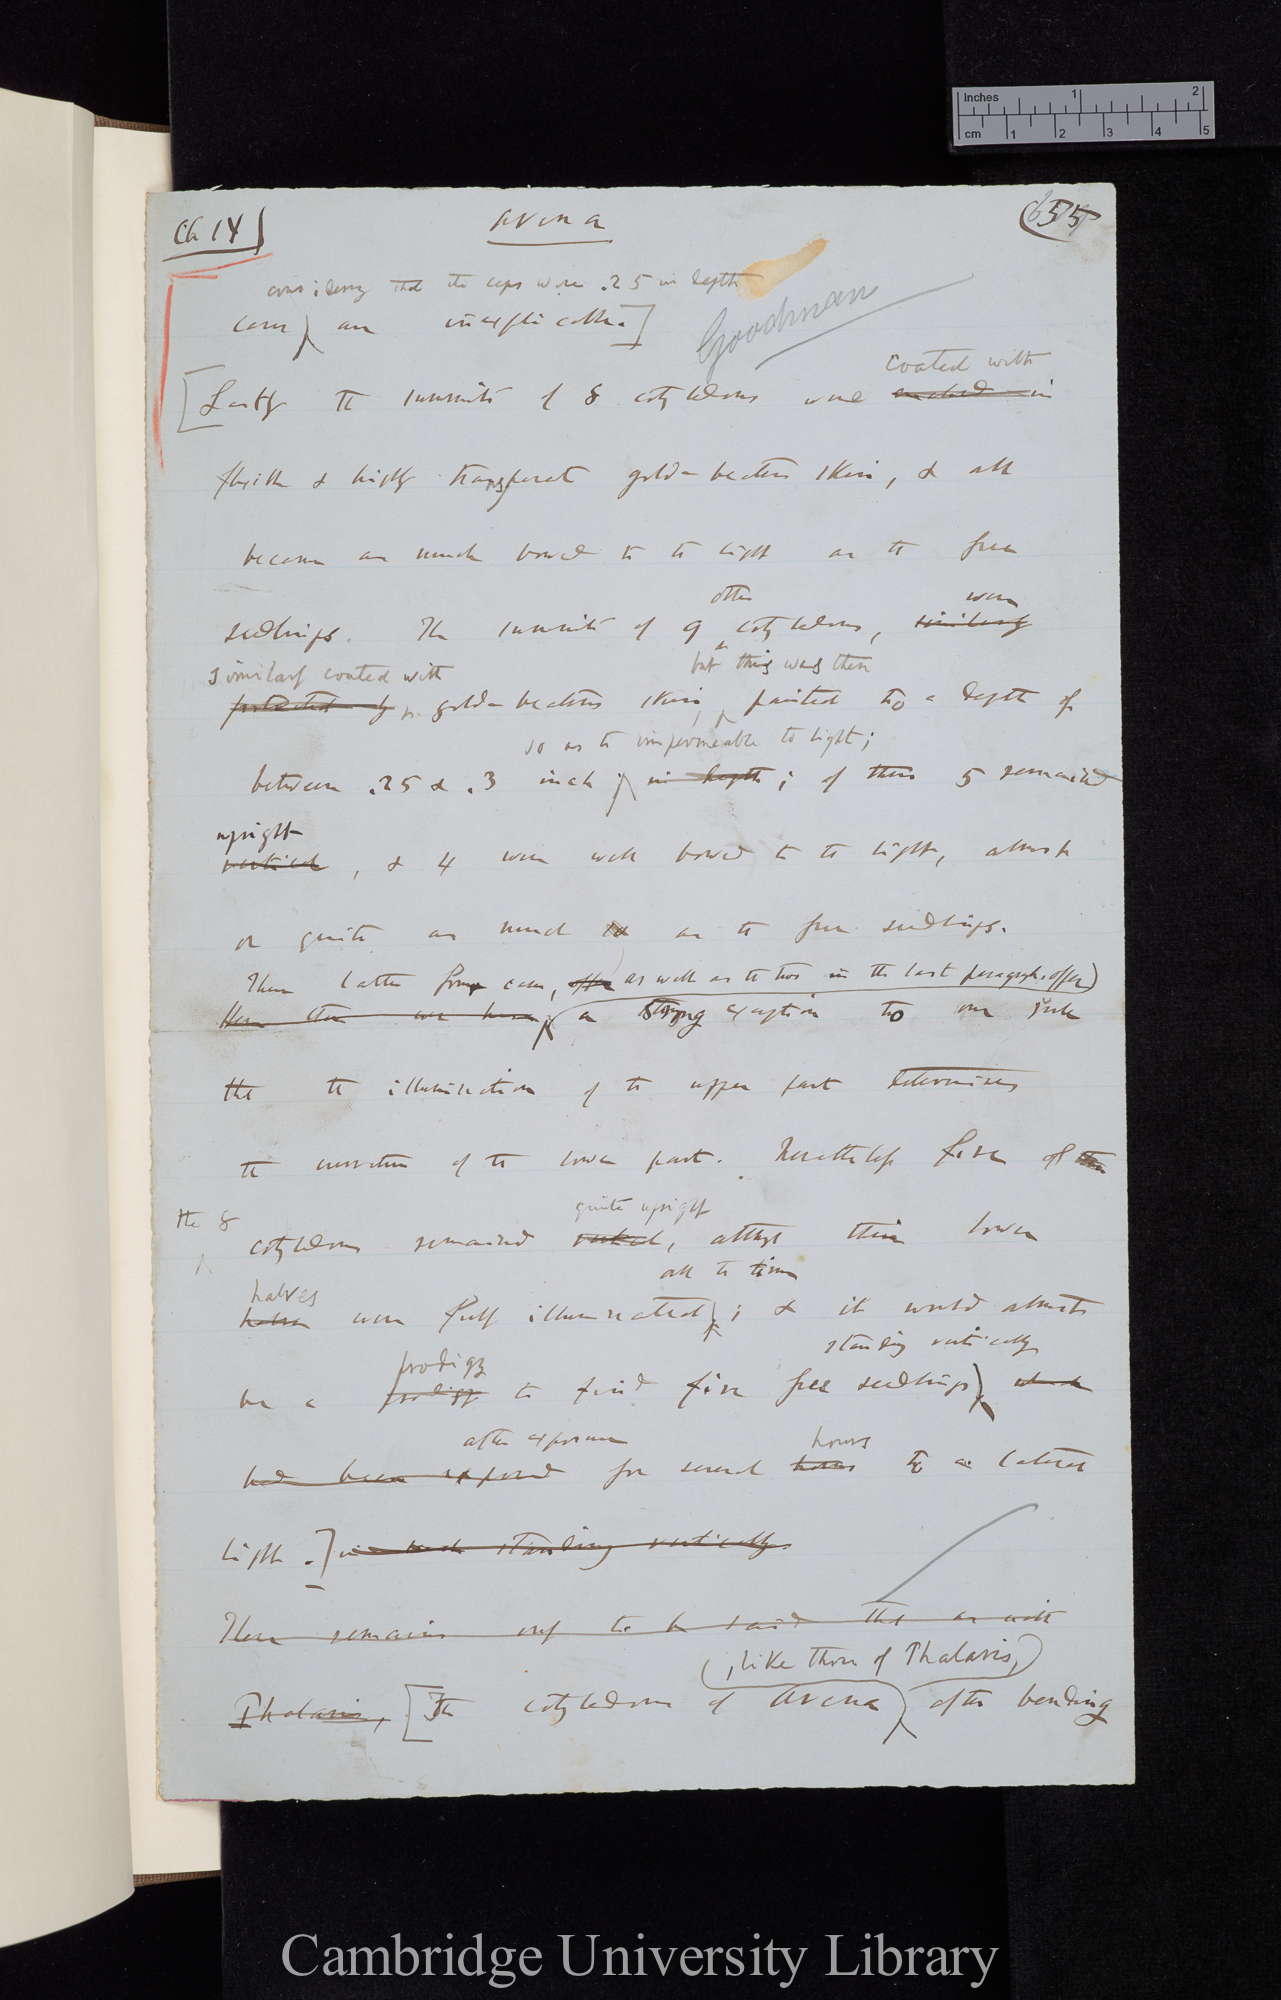 Inches 1 2
cm 1 2 3 4 5
Ch IX
Avena
(655
considering that the caps were .25 in depth
cases are inexplicable.]
Goodman
coated with
[Lastly the summits of 8 cotyledons were in
flexible & highly transparent gold-beaters skin, & all
became as much bowed to the light as the free
other were
seedlings. The summits of 9 cotyledons, similarly
similarly coated with but this was then
protected by gold-beaters skin, painted to a depth of
so as to impermeable to light;
between .25 & .3 inch in depth; of these 5 remained
upright
vertical, & 4 were well bowed to the light, almost
or quite as much as the free seedlings.
These latter four cases, offer as well as the two in the last paragraph, offer
Here then we have a strong exception to our rule
that the illumination of the upper part determines
the curvature of the lower part. Nevertheless five of these
the 8 quite upright
cotyledons remained vertical, although their lower
all the time
halves
halves were fully illuminated; & it would almost
standing vertically
prodigy
be a prodigy to find five free seedlings which
after exposure hours
had been exposed for several hours to a lateral
light.] standing vertically.
There remains only to be said that as with
(, like those of Phalaris,)
Phalaris, [The cotyledons of Avena after bending
Cambridge University Library